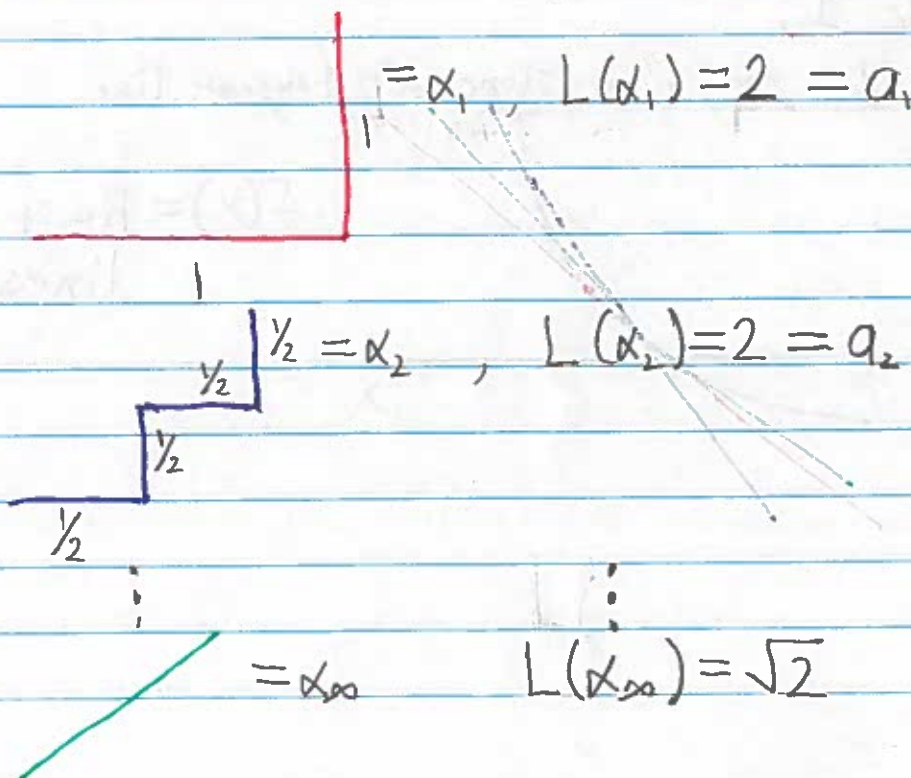 = α₁, L(α₁) = 2 = a₁
1
1
½ = α₂ , L(α₂) = 2 = a₂
½
½
½
⋮ ⋮
= α∞ L(α∞) = √2